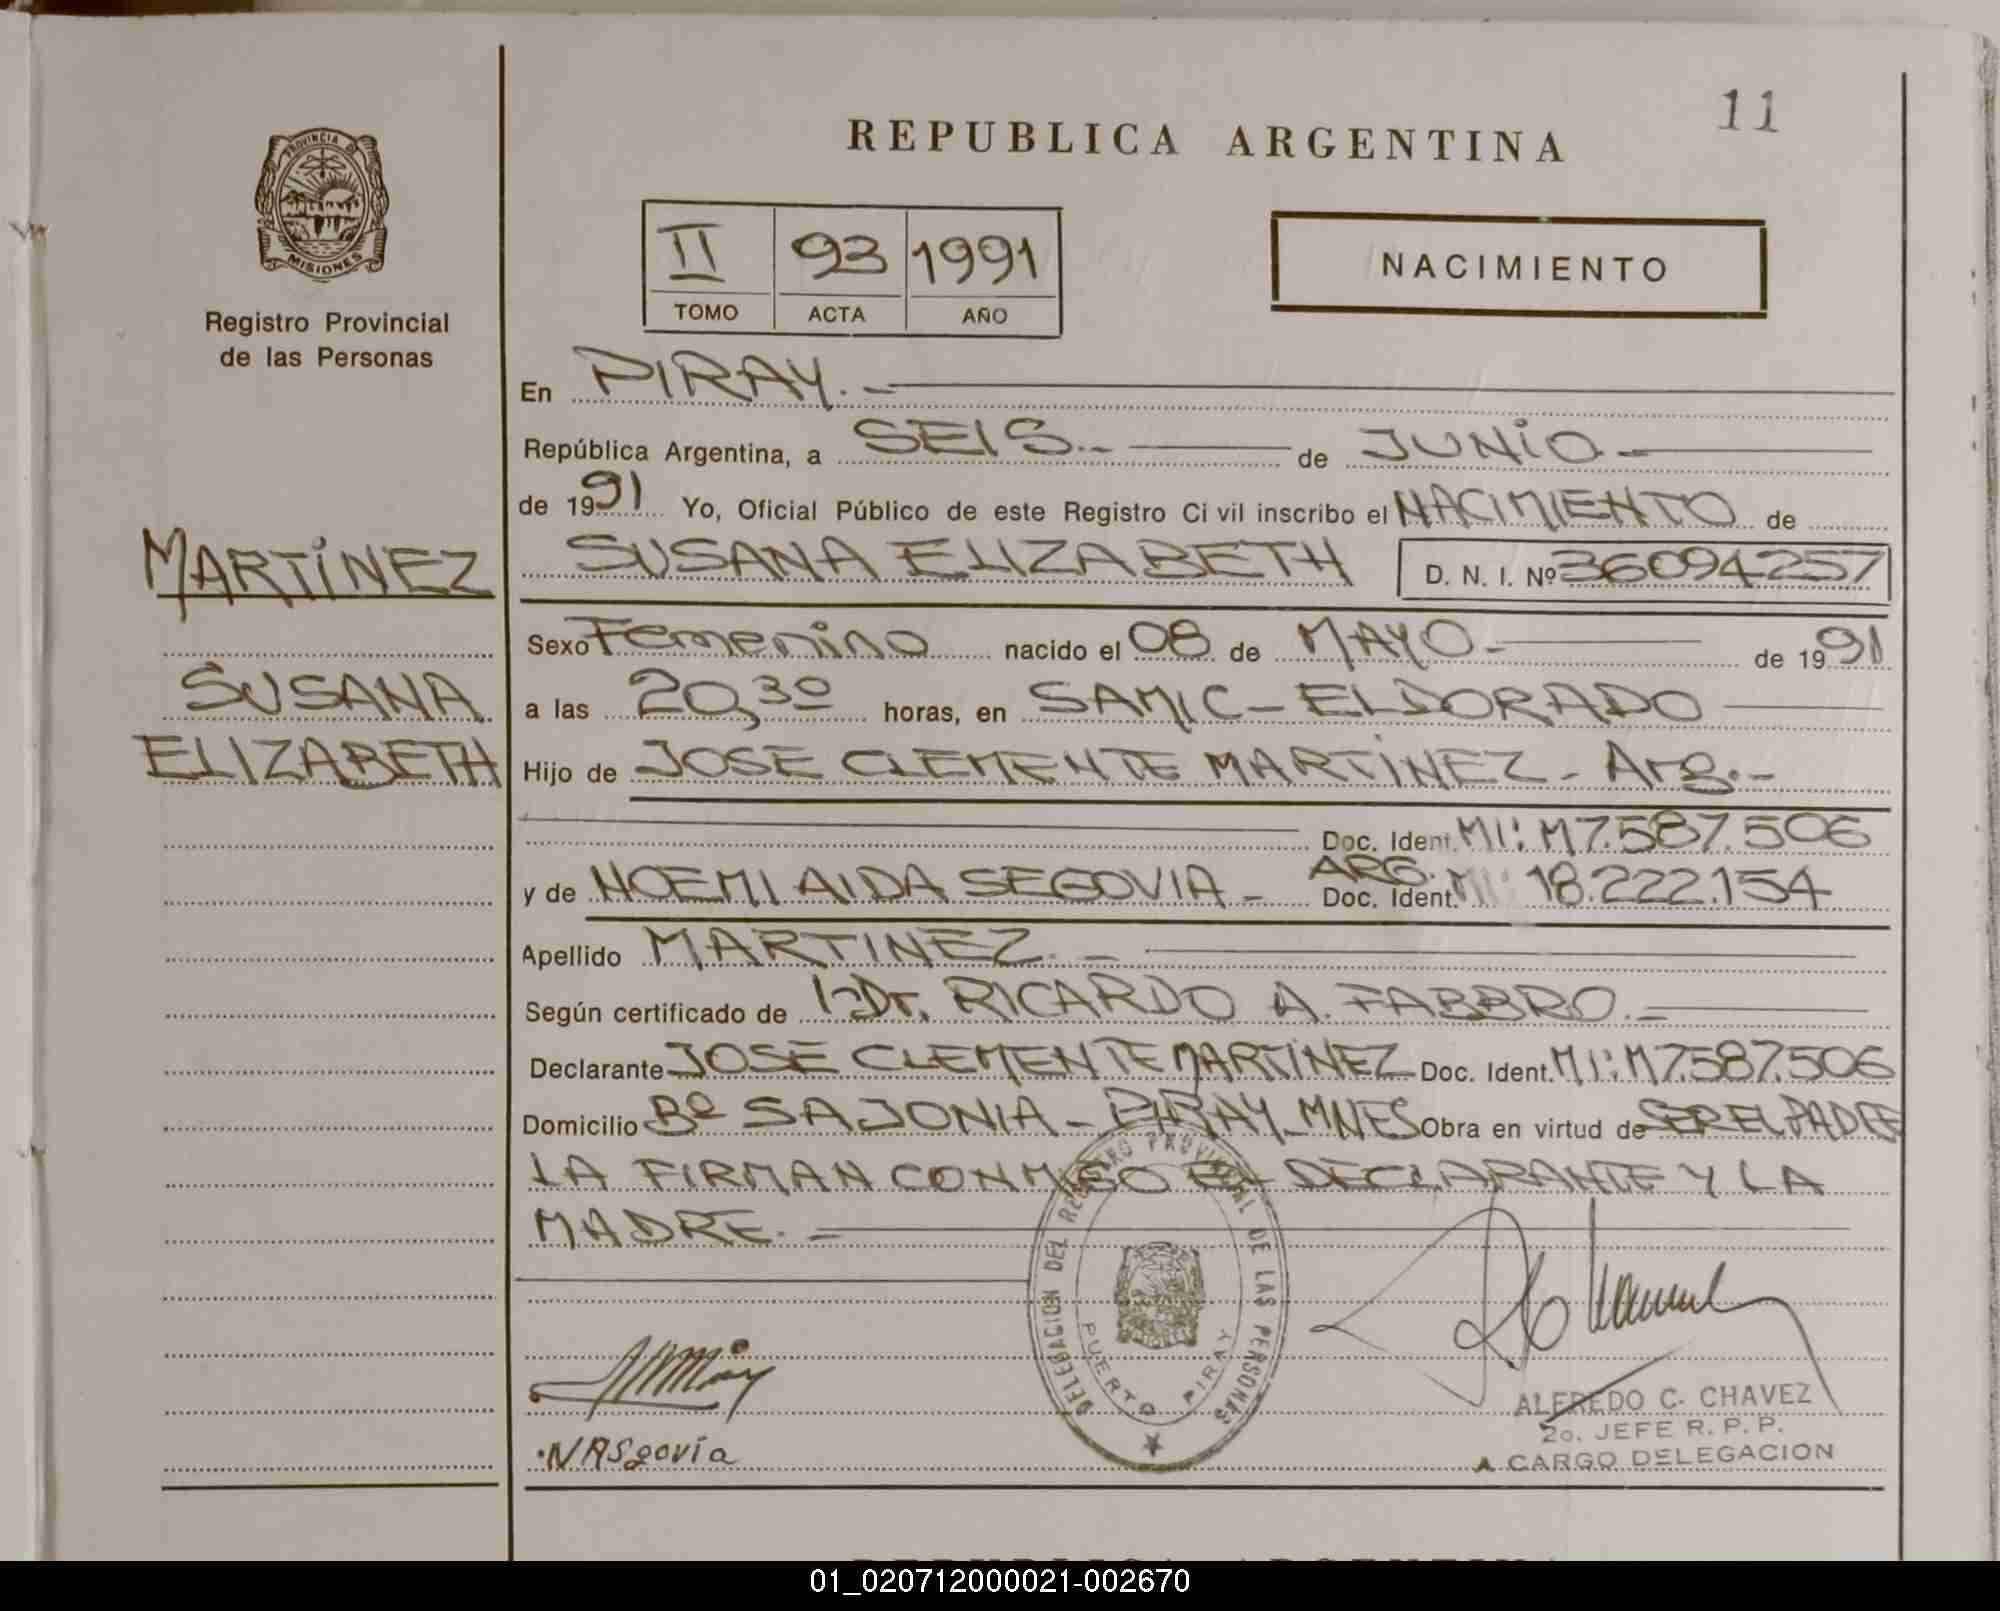 11
REPUBLICA ARGENTINA
PROVINCIA D
MISIONES
Registro Provincial
de las Personas
II 93 1991
TOMO ACTA AÑO
NACIMIENTO
MARTÍNEZ
SUSANA
ELIZABETH
En PIRAY.-
República Argentina, a SEIS.- de JUNIO-
de 1991 Yo, Oficial Público de este Registro Ci vil inscribo el NACIMIENTO de
SUSANA ELIZABETH D. N. I. Nº 36094257
Sexo Femenino nacido el 08 de MAYO- de 1991
a las 20,30 horas, en SAMIC-ELDORADO
Hijo de JOSE CLEMENTE MARTÍNEZ- Arg.-
Doc. Ident. MI: M7.587.506
y de NOEMI AIDA SEGOVIA - ARG. Doc. Ident. MI: 18.222.154
Apellido MARTINEZ.-
Según certificado de Dr. RICARDO A. FABBRO.-
Declarante JOSE CLEMENTE MARTÍNEZ Doc. Ident. MI: M7.587.506
Domicilio Bº SAJONIA - PIRAY_MNES Obra en virtud de SER EL PADRE
LA FIRMAN CONMIGO EL DECLARANTE Y LA
MADRE.-
DELEGACION DEL REGISTRO PROVINCIAL DE LAS PERSONAS
PUERTO PIRAY
NASgovia
ALFREDO C. CHAVEZ
2o. JEFE R. P. P.
A CARGO DELEGACION
01_020712000021-002670